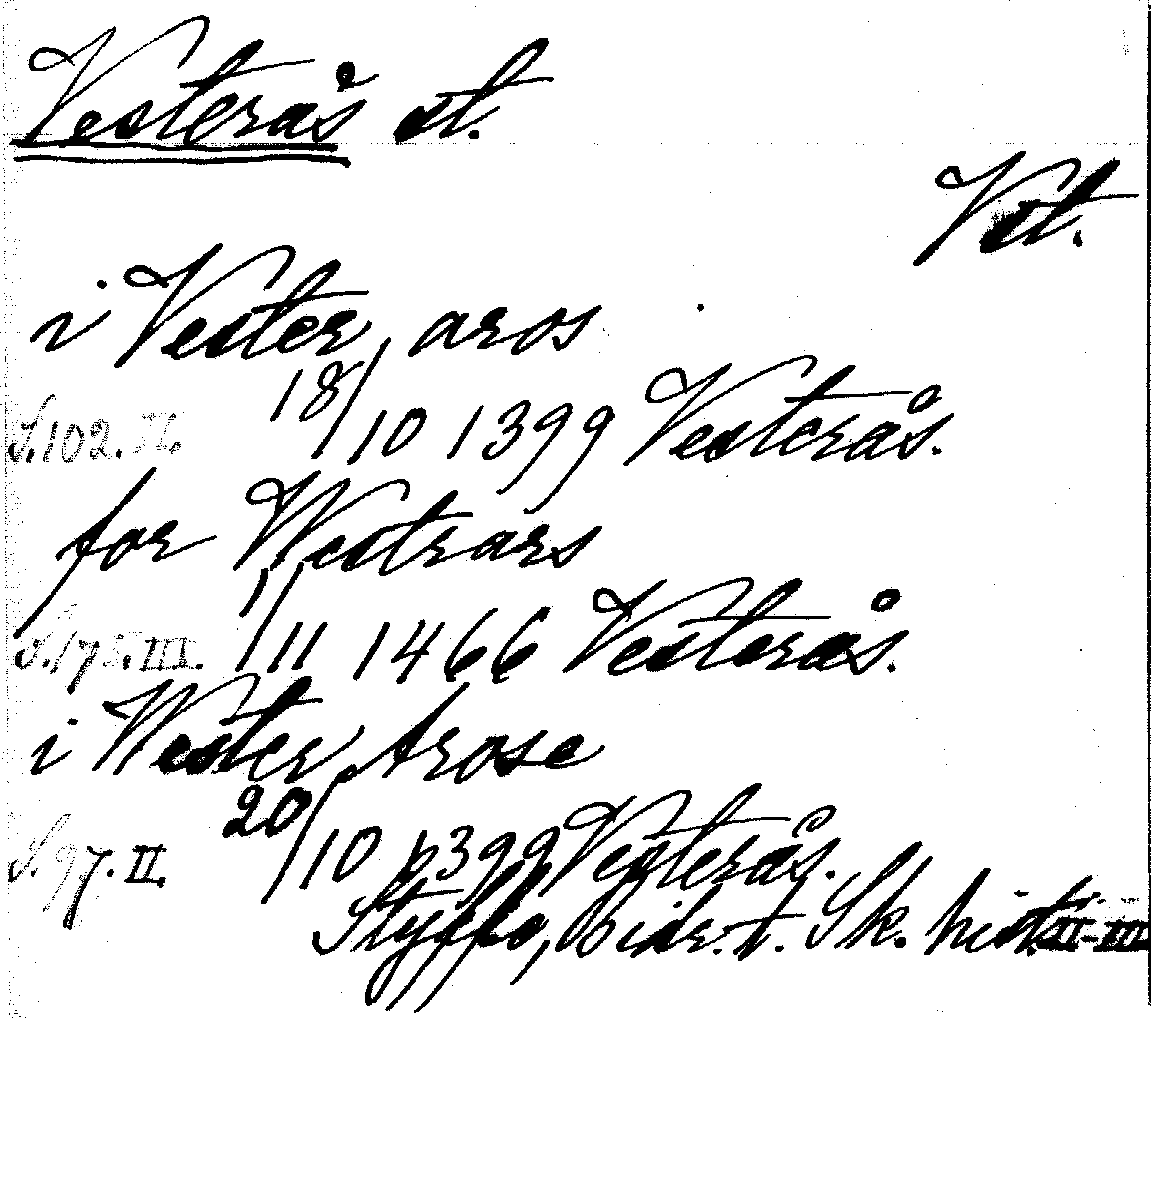 Vesterås st.
Vst.
i Vester aros
S. 102. II. 18/10 1399 Vesterås.
for Westrars
S. 173. III. 1/11 1466 Vesterås.
i Wester Arose
S. 97. II. 20/10 1399 Vesterås.
Styffe, Bidr. t. Sk. hist. II-III